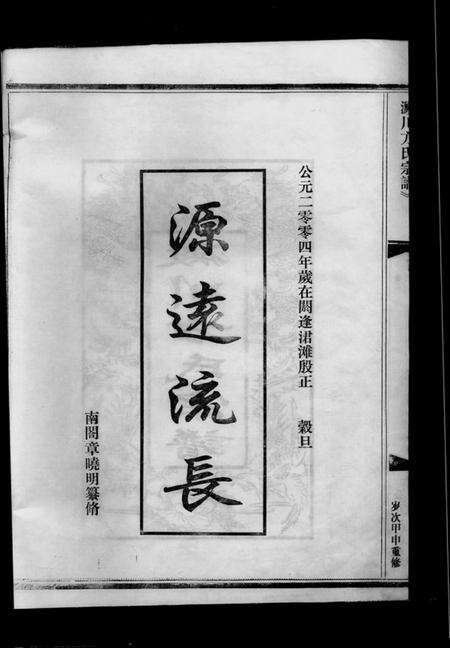 川方氏宗譜》
岁次甲申重修
公元二零零四年歲在閼逢涒滩殷正 榖旦
源遠流長
南閤章曉明纂脩